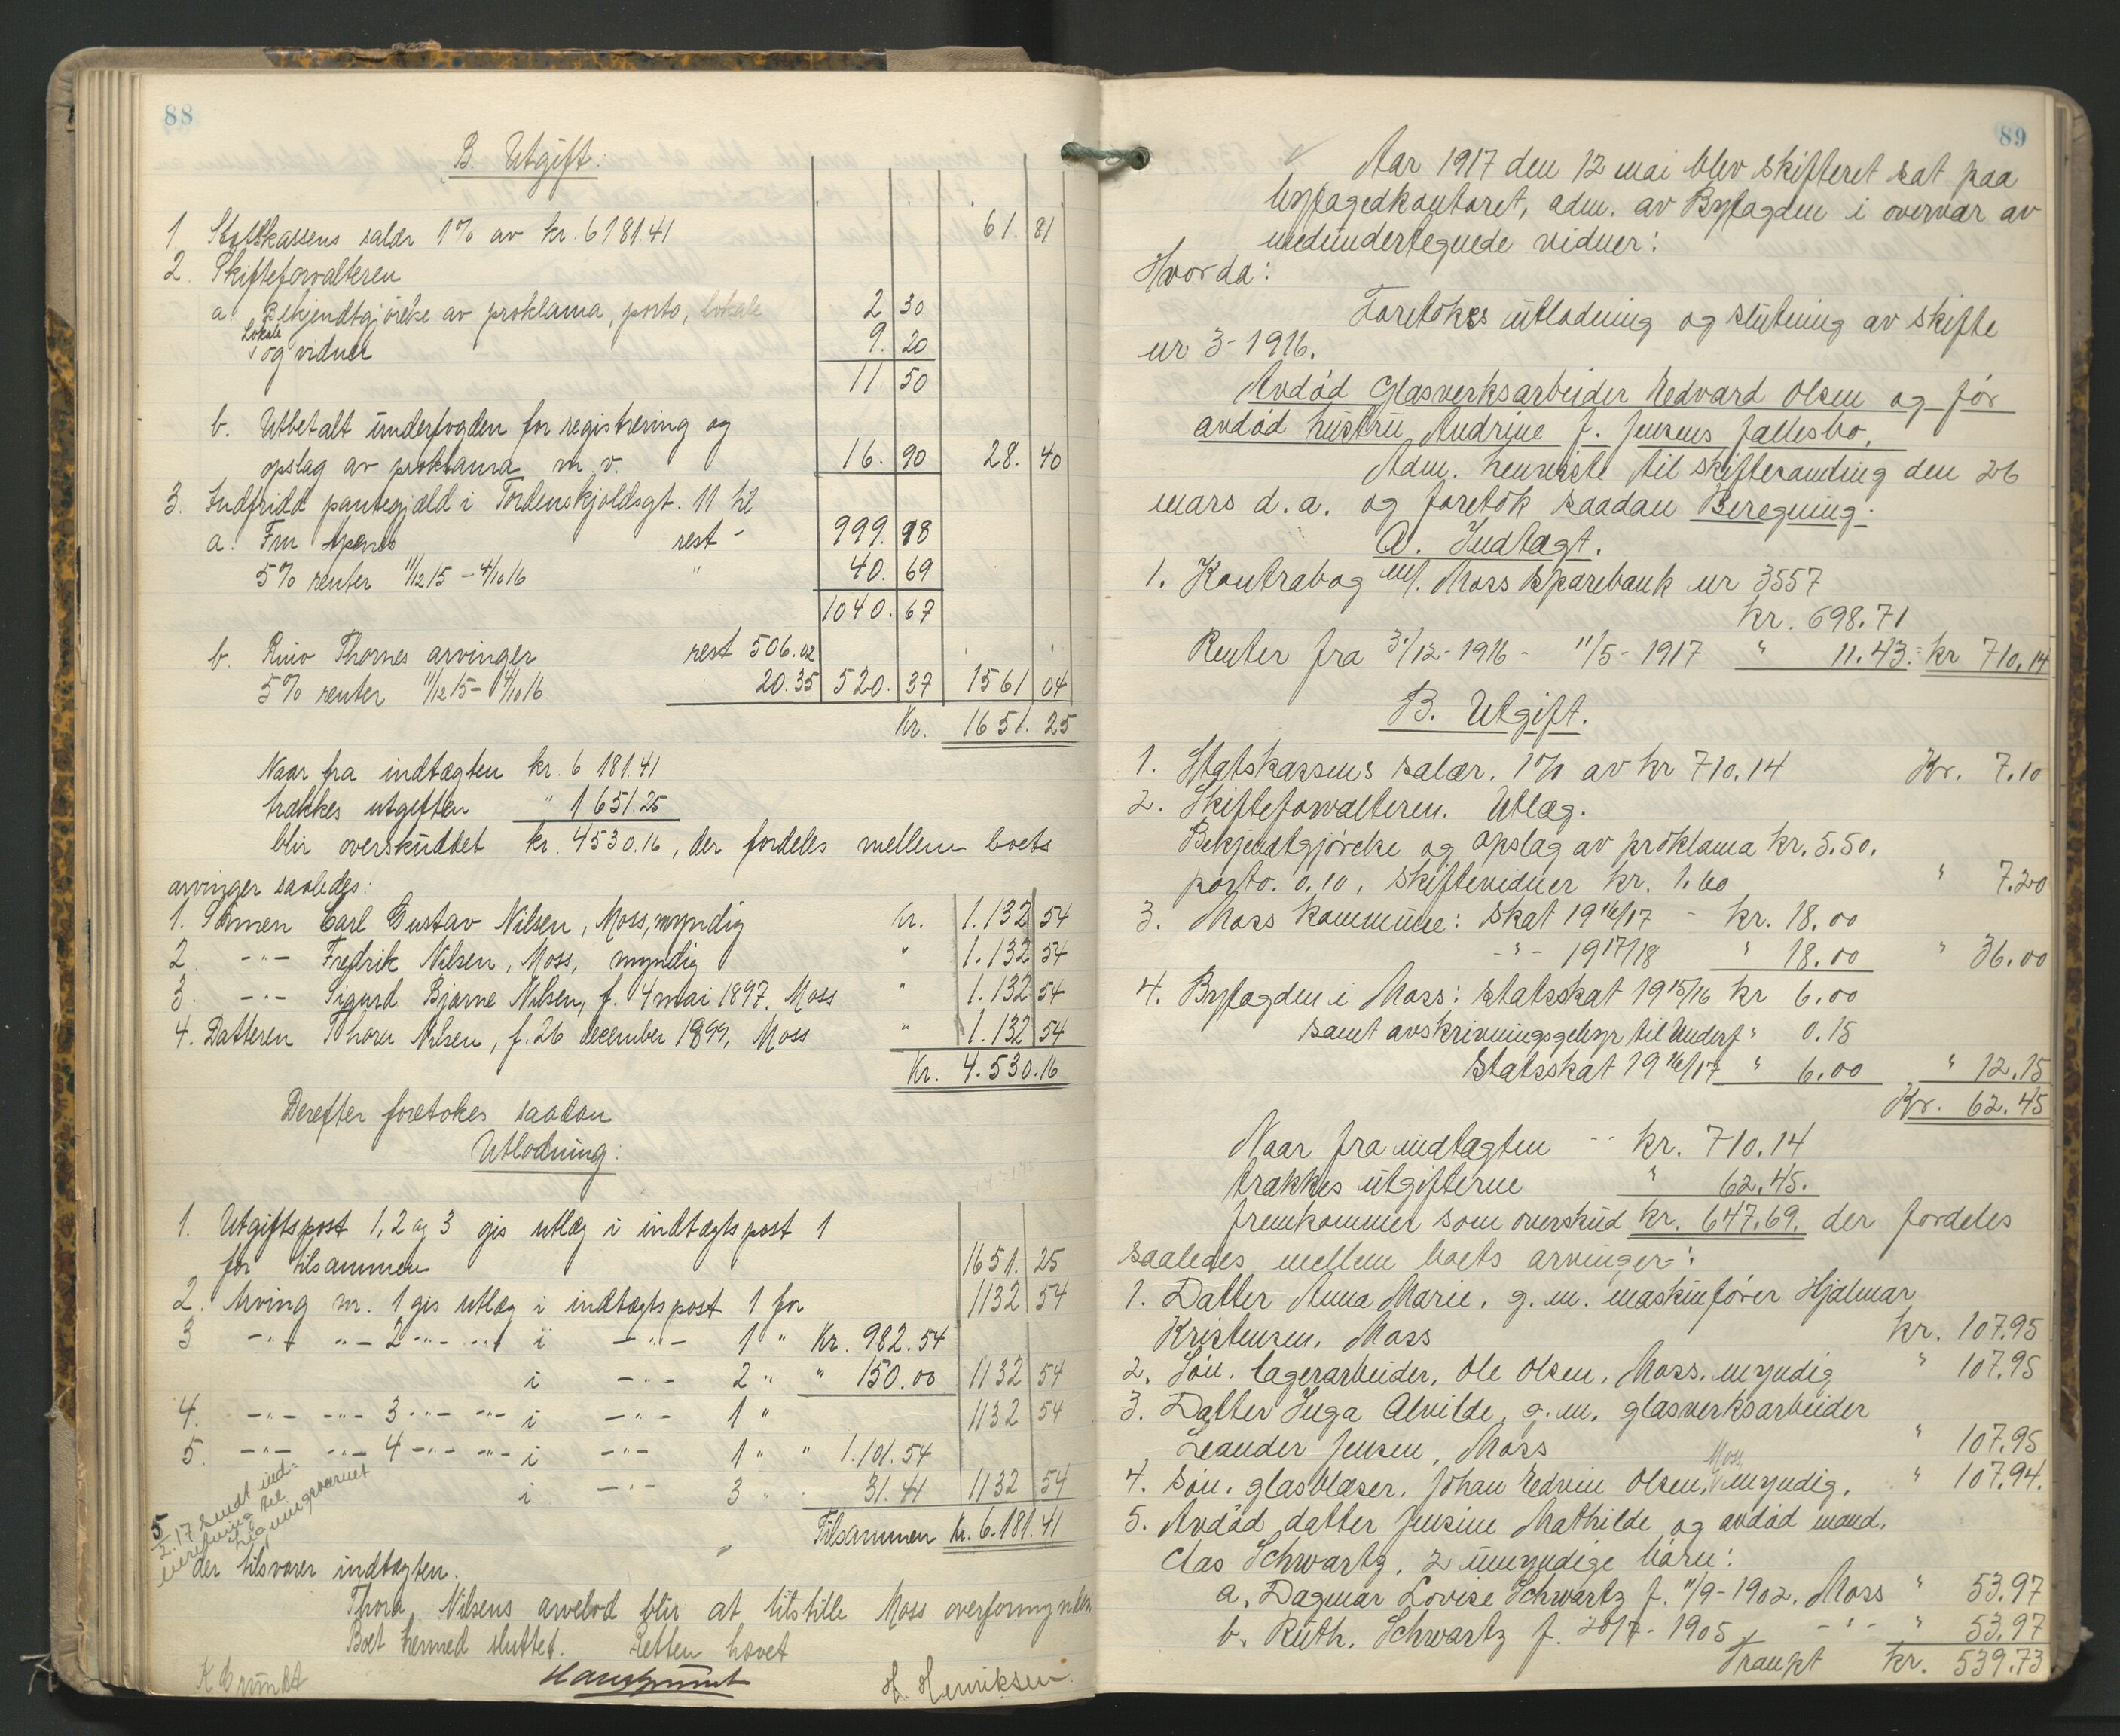 88
B. Utgift:
1. Statskassens salær 1% av kr. 6181.41 61. 81
2. Skifteforvalteren
a. Bekjendtgjørelse av proklama, porto, lokale 2 30
Lokale
og vidner 9. 20
11. 50
b. Utbetalt underfogden for registrering og
opslag av proklama m. v. 16. 90 28. 40
3. Indfridd pantegjæld i Tordenskjoldsgt. 11 til
a. Fru rest - 999. 98
5% renter 11/12 15 - 4/10 16 " 40. 69
1040. 67
b. Thornes arvinger rest 506.02
5% renter 11/12 15 - 4/10 16 20.35 520. 37 1561 04
Kr. 1651. 25
Naar fra indtægten kr. 6 181.41
trækkes utgiften " 1651.25
blir overskuddet kr. 4530.16, der fordeles mellem boets
arvinger saaledes:
1. Sönnen Carl Gustav Nilsen, Moss, myndig Kr. 1.132 54
2. -"- Fredrik Nilsen, Moss, myndig " 1.132 54
3. -"- Sigurd Bjarne Nilsen, f. 4 mai 1897. Moss " 1.132 54
4. Datteren Thora Nilsen, f. 26 december 1899, Moss " 1.132 54
Kr. 4.530.16
Derefter foretokes saadan
Utlodning:
1. Utgiftspost 1, 2 og 3 gis utlæg i indtægtspost 1
for tilsammen 1651. 25
2. Arving nr. 1 gis utlæg i indtægtspost 1 for 1132 54
3 -"- -"- 2 -"- -"- i -"- 1 " Kr. 982.54
i -"- 2 " " 150.00 1132 54
4. -"- -"- 3 -"- -"- i -"- 1 " 1132 54
5. -"- -"- 4 -"- -"- i -"- 1 " " 1.101.54
i -"- 3 " . 31.41 1132 54
Tilsammen Kr. 6.181.41
5/2.17 sendt ind-
beretning til
ligningsvæsenet
der tilsvarer indtægten.
Thora Nilsens arvelod blir at tilstille Moss overformynderi
Boet hermed sluttet. Retten hævet
K Grundt H. Henriksen
89
Aar 1917 den 12 mai blev skifteret sat paa
byfogedkontoret, adm. av Byfogden i overvær av
medundertegnede vidner:
Hvorda:
Foretokes utlodning og slutning av skifte
nr 3-1916.
Avdød Glasverksarbeider Edvard Olsen og før
avdød hustru Andrine f. Jensens fællesbo.
Adm. henviste til skiftesamling den 26
mars d. a. og foretok saadan Beregning:
A. Indtægt.
1. Kontrabog m/. Moss Sparebank nr 3557
kr. 698.71
Renter fra 31/12-1916 - 11/5-1917 " 11.43 = kr 710.14
B. Utgift.
1. Statskassens salær. 1% av kr 710.14 Kr. 7.10
2. Skifteforvalteren. Utlæg.
Bekjendtgjørelse og opslag av proklama kr. 5.50.
porto. 0.10, skiftevidner kr. 1.60 " 7.20
3. Moss kommune: Skat 1916/17 - kr. 18.00
-"- 1917/18 " 18.00 " 36.00
4. Byfogden i Moss: Statsskat 1915/16 kr 6.00
samt avskrivningsgebyr til Underf " 0.15
Statsskat 1916/17 " 6.00 " 12.15
Kr. 62.45
Naar fra indtægten -- kr. 710.14
trækkes utgifterne " 62.45.
fremkommer som overskud kr. 647.69. der fordeles
saaledes mellem boets arvinger:
1. Datter Anna Marie. g. m. maskinfører Hjalmar
Kristensen. Moss kr. 107.95
2. Søn. lagerarbeider, Ole Olsen, Moss. myndig " 107.95
3. Datter Inga Alvilde, g. m. glasverksarbeider
Leander Jensen, Moss " 107.95
4. Søn. glasblæser. Johan Edvin Olsen, Moss, myndig. " 107.94.
5. Avdød datter Jensine Mathilde og avdød mand.
Clas Schwartz. 2 umyndige børn:
a. Dagmar Lovise Schwartz f. 11/9-1902. Moss " 53.97
b. Ruth. Schwartz f. 20/7-1905 -"- " 53.97
Transpt kr. 539.73